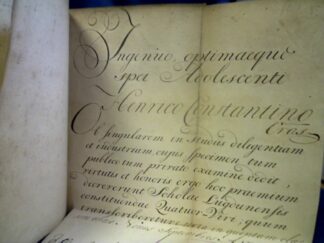 Ingenuo optimaeque
spei Adolescenti
Henrico Constantino
Cras
Ob singularem in studiis diligentiam
et industriam cujus specimen tum
publico tum privato examine dedit,
virtutis et honoris ergo hoc praemium
decreverunt Scholae
constituendae Quatuor Viri; quum
transfer